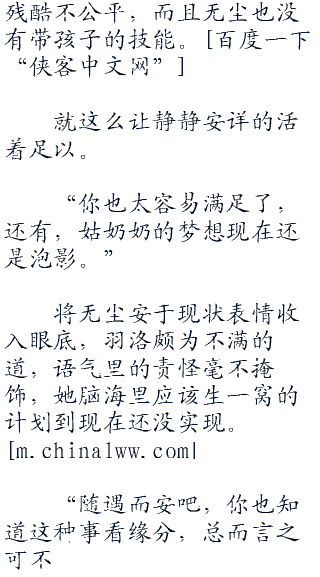 残酷不公平，而且无尘也没
有带孩子的技能。[百度一下
“侠客中文网”]
就这么让静静安详的活
着足以。
“你也太容易满足了，
还有，姑奶奶的梦想现在还
是泡影。”
将无尘安于现状表情收
入眼底，羽洛颇为不满的
道，语气里的责怪毫不掩
饰，她脑海里应该生一窝的
计划到现在还没实现。
[m.chinalww.com]
“随遇而安吧，你也知
道这种事看缘分，总而言之
可不